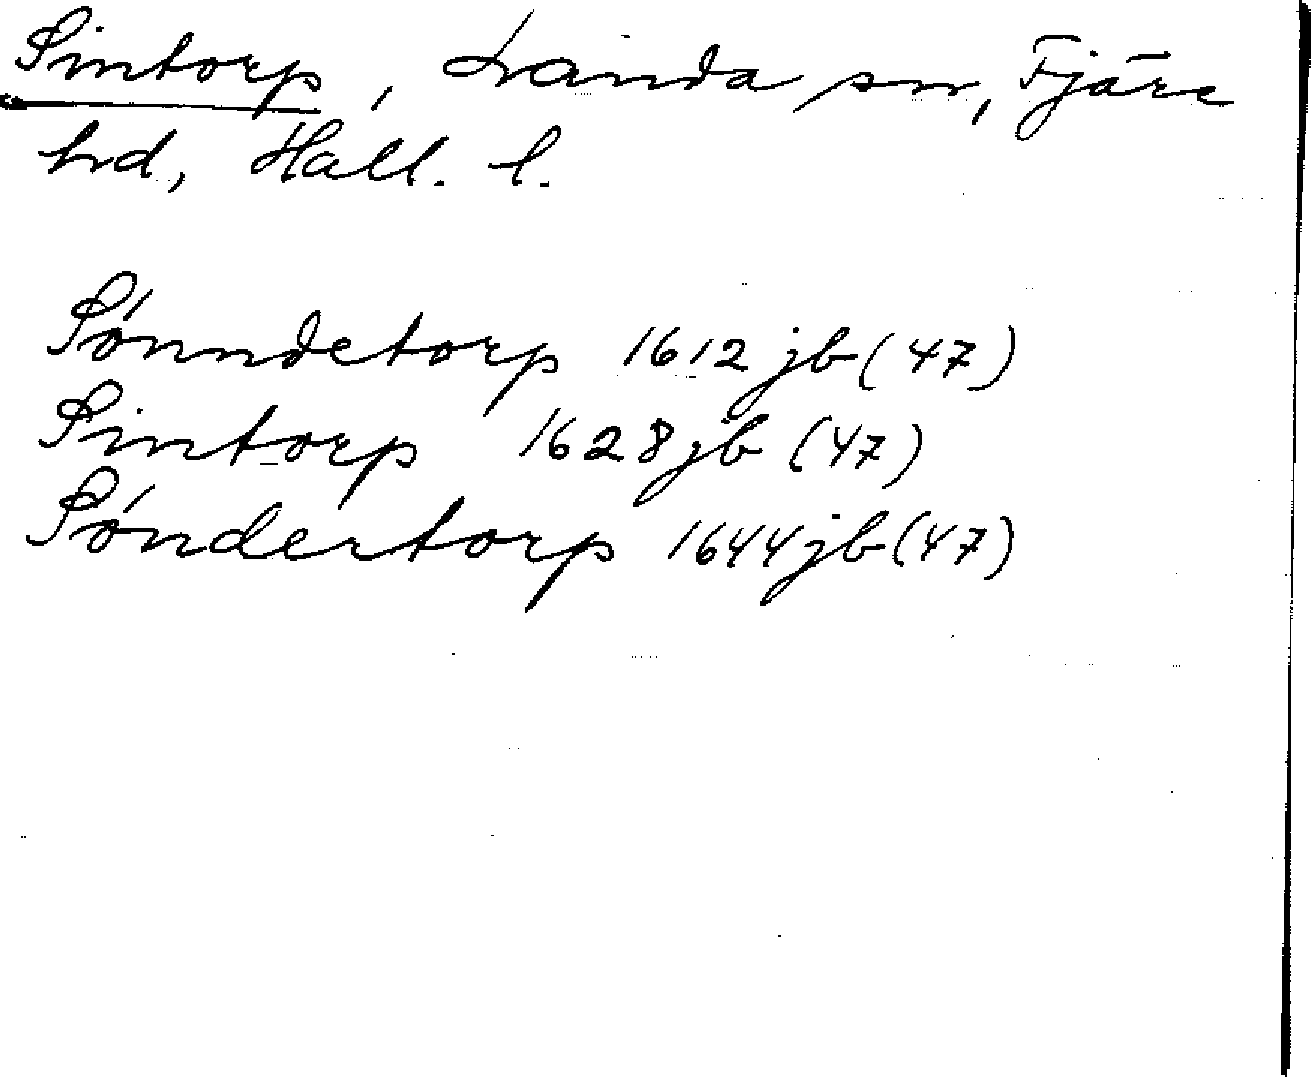 Sintorp, Landa sn, Fjäre
hd, Hall. l.
Sønndetorp 1612 jb (47)
Sintorp 1628 jb (47)
Søndertorp 1644 jb (47)